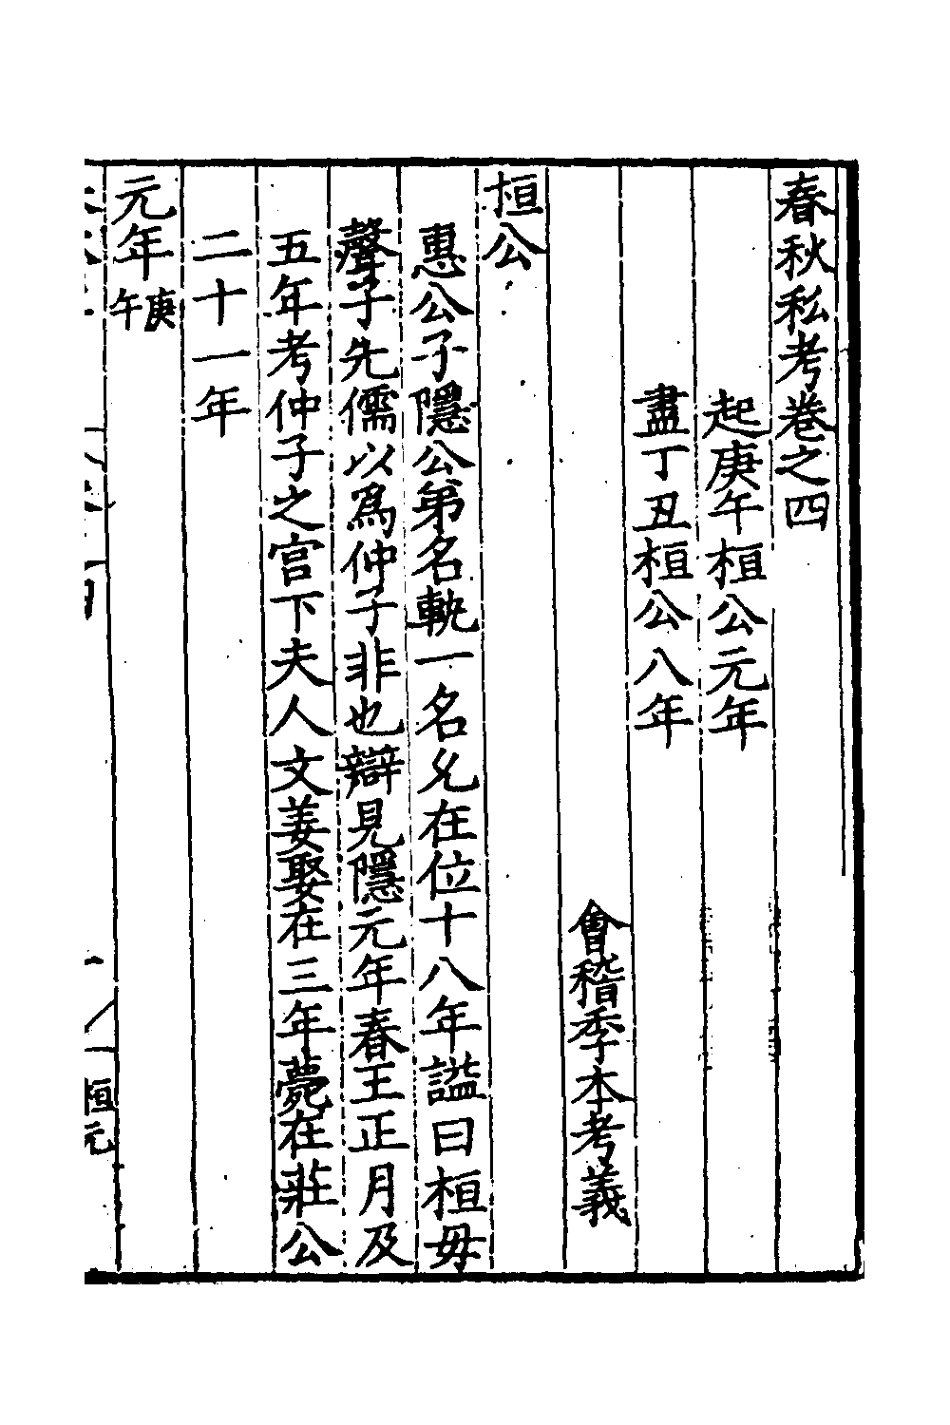 春秋私考卷之四
起庚午桓公元年
盡丁丑桓公八年
會稽季本考義
桓公
惠公子隱公弟名軌一名允在位十八年謚曰桓毋
聲子先儒以為仲子非也辯見隱元年春王正月及
五年考仲子之宮下夫人文姜娶在三年薨在莊公
二十一年
元年庚午
桓元